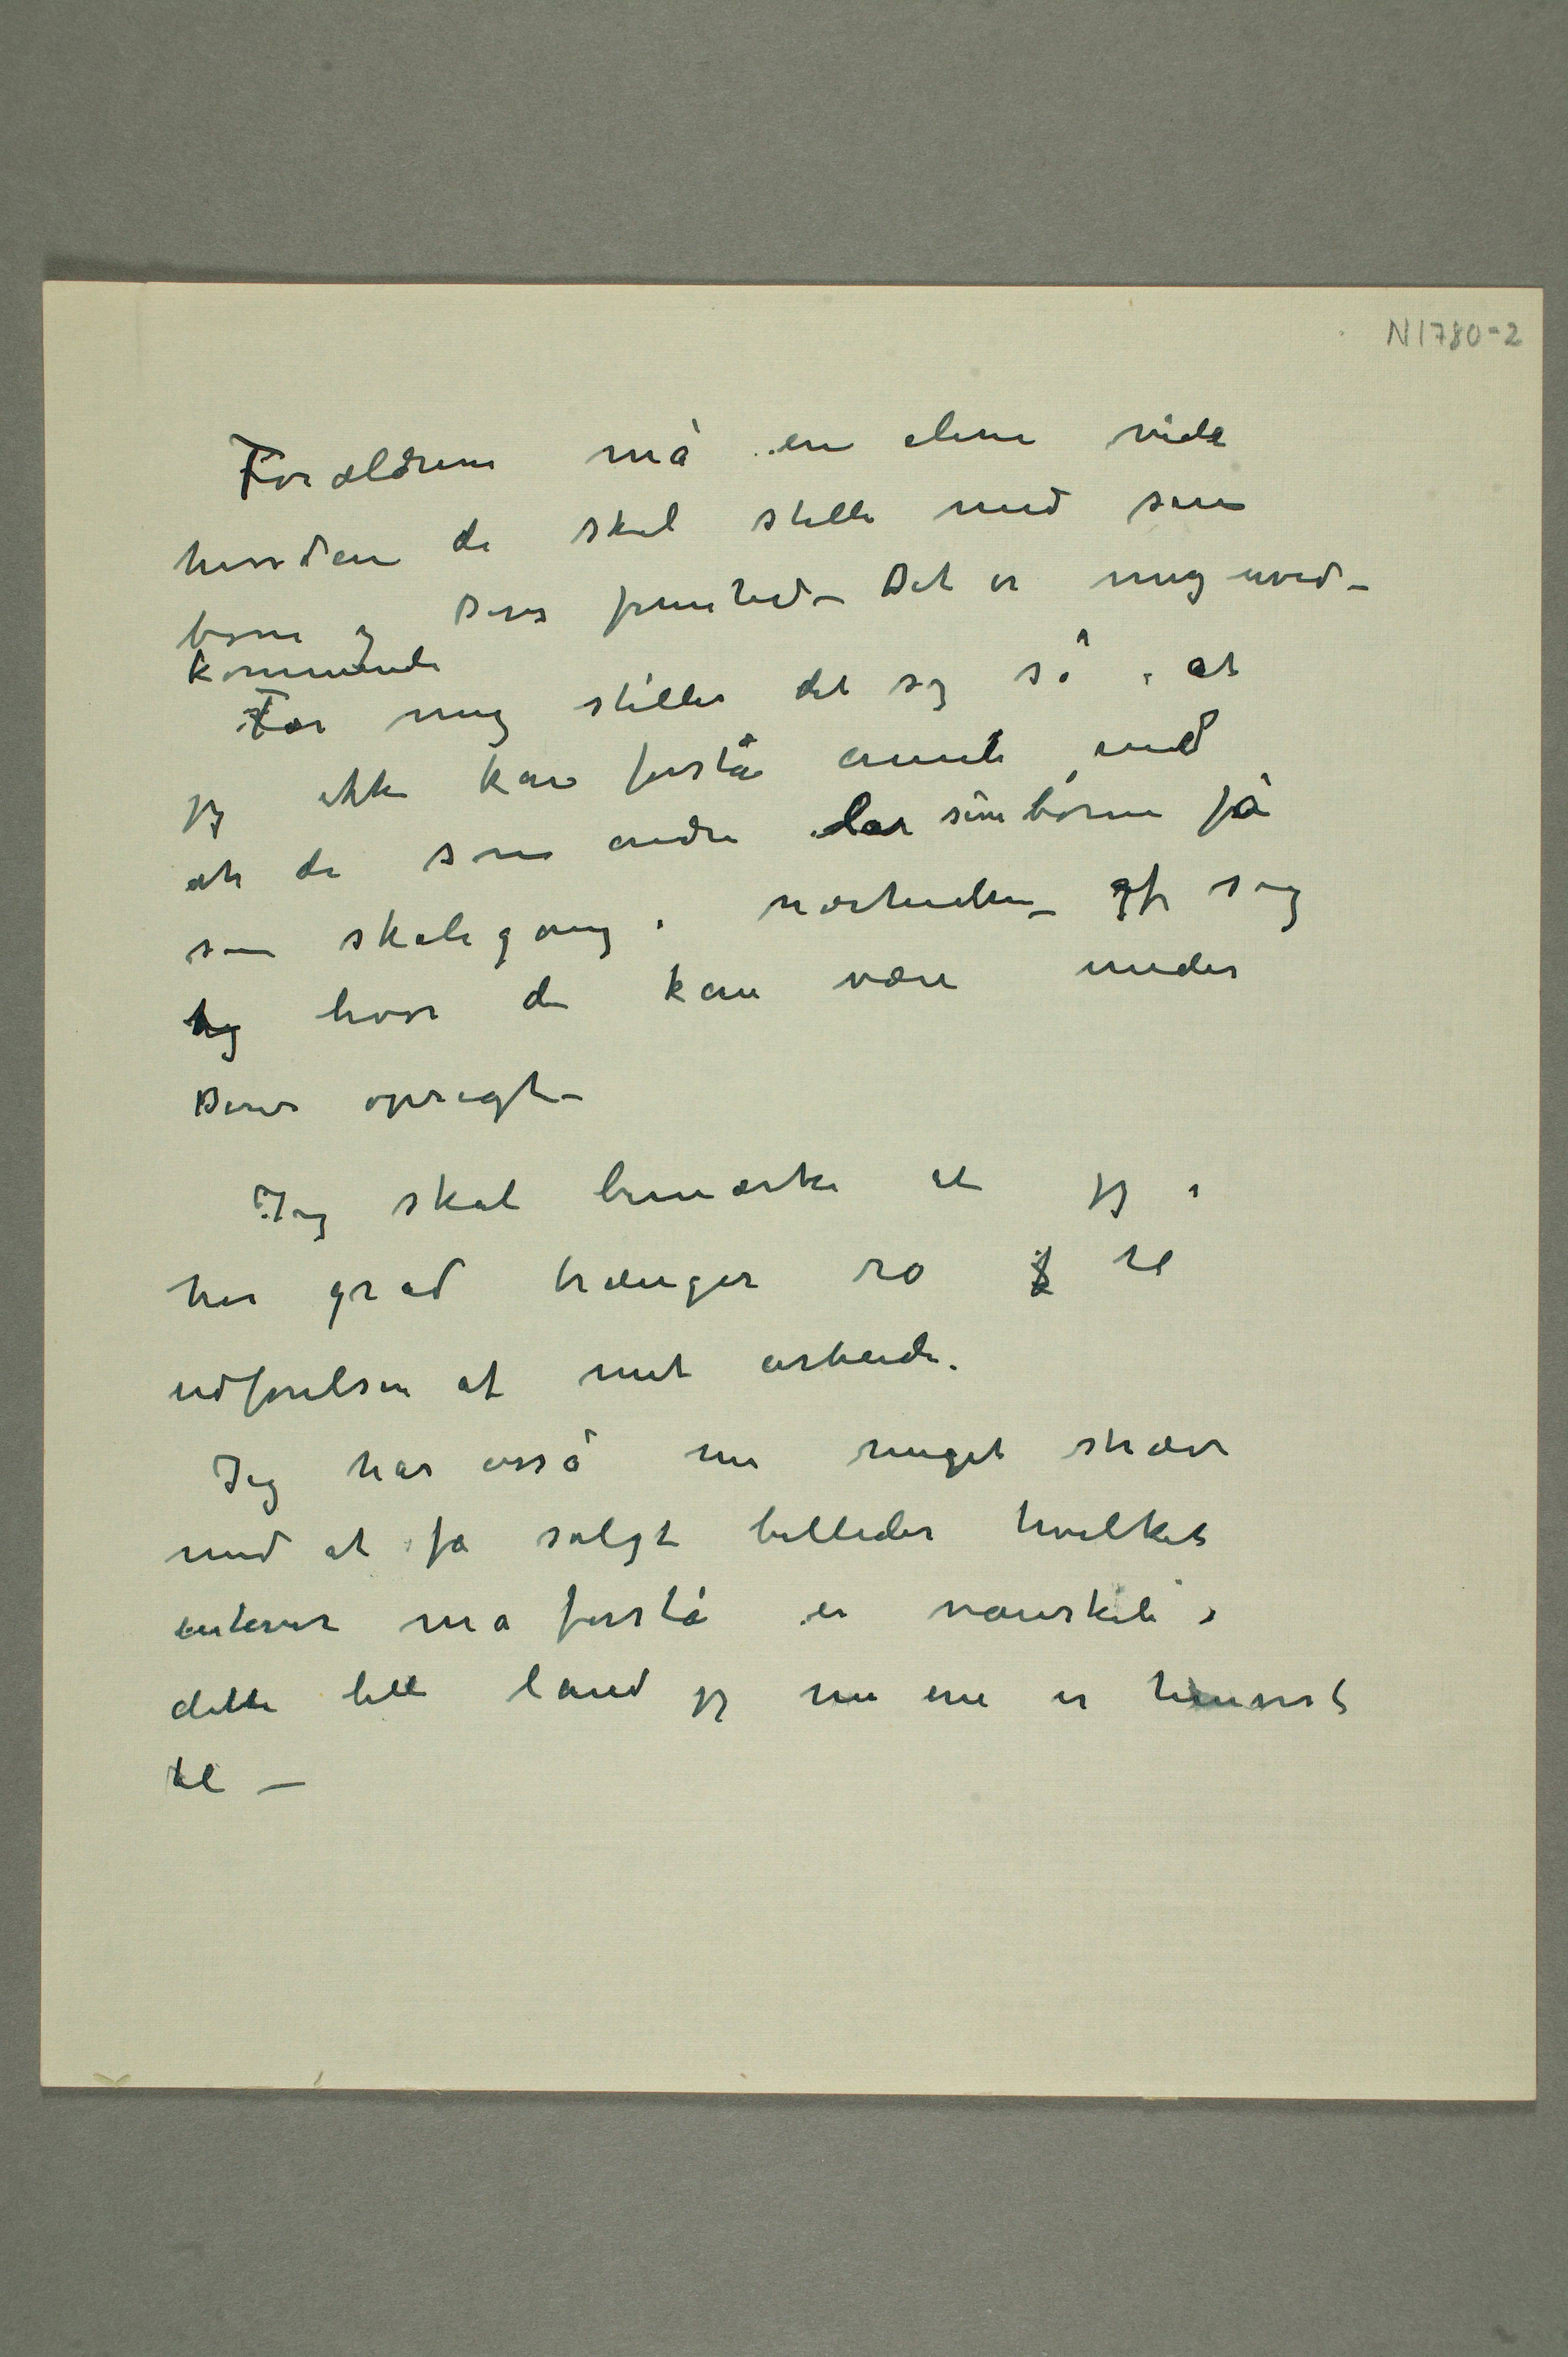 N1780-2
Forældrene må ene alene vide
hvordan de skal stille med sine
børn og Deres frihed – Det er mig uved-
kommende
For mig stiller det sig så, at
jeg ikke kan forstå annet end
at de som andre lar sine børn få
sin skolegang i nærheden af sig
og hvor de kan være under
Deres opsigt –
Jeg skal bemærke at jeg i
høi grad trænger ro til
udførelsen af mit arbeide.
Jeg har også nu meget stræv
med at få solgt billeder hvilket
enhver må forstå er vanskeli i
dette lille land jeg nu ene er henvist
til –